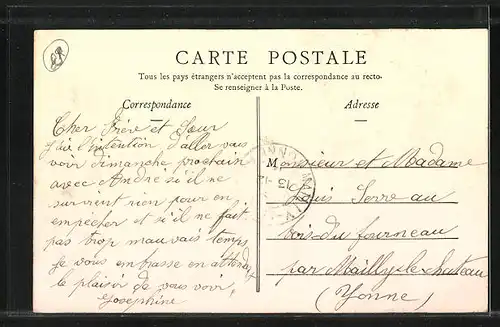 CARTE POSTALE
Tous les pays étrangers n'acceptent pas la correspondance au recto-
Se renseigner à la Poste.
Correspondance
Cher Frère et Sœur
J'ai l'intention d'aller vous
voir dimanche prochain
avec André si il ne
survient rien pour en
empécher et si il ne fait
pas trop mauvais temps
Je vous embrasse en attendant
le plaisir de vous voir,
Josephine
Adresse
Monsieur et Madame
Louis Serre au
bois-du fourneau
par Mailly-le-chateau
(Yonne)